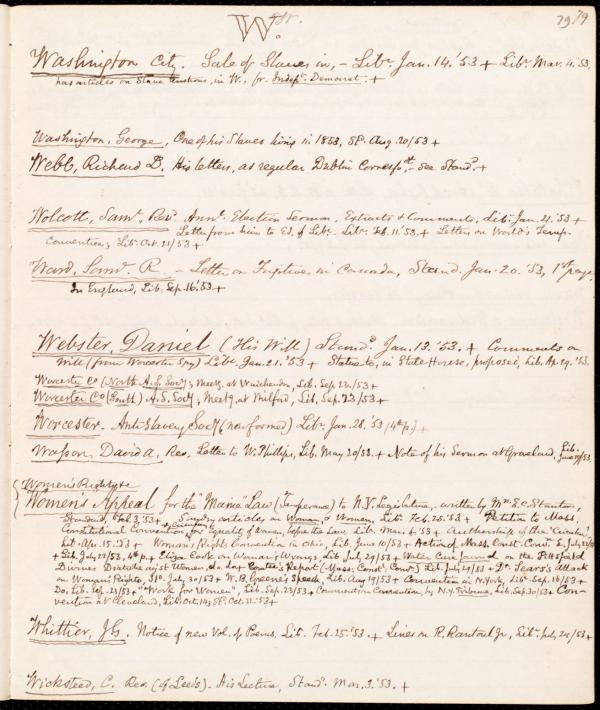 W. W. 79 79
Washington City. Sale of Slaves in, - Libr. Jan. 14. '53 + Libr. Mar. 4. '53.
has articles on Slave Auctions, in W., fr. Indept. Democrat. +
Washington, George, One of his Slaves living in 1853, St. Aug. 20/53 +
Webb, Richard D. His letters, as regular Dublin Correspt. - see Standd. +
Wolcott, Saml. Rev. Annl. Election Sermon, Extracts & Comments, Lib. Jan. 21. '53 +
Letter from him to Ed. of Libr. Libr. Feb. 11. '53. + Letters on World's Temp.
Convention; Lib. Oct. 21/53 +
Ward, Saml. R. - Letter on Fugitives in Canada, Stand. Jan. 20. '53, 1st page.
In England, Lib. Sep. 16. '53 +
Webster, Daniel (His Will) Standd. Jan. 13. '53. + Comments on
Will (from Worcester Spy) Libr. Jan. 21. '53 + Statue to, in State House, proposed, Lib. Ap. 29. '53.
Worcester Co (North A.S. Socy; Meetg. at Winchendon, Lib. Sep. 23/53 +
Worcester Co (South) A.S. Socy; Meetg at Milford, Lib. Sep. 23/53 +
Worcester - Anti-Slavery Socy (new formed) Libr. Jan. 28. '53 (4th p.) +
Wasson, David A., Rev. Letter to W. Phillips, Lib. May 20/53. + Note of his Sermon at Groveland, Lib. June 17/53.
Women's Rights, &c
Women's Appeal for the "Maine" Law (Temperance) to N.Y. Legislature, written by Mrs. E.C. Stanton,
Standard, Feb. 3, '53 + Sundry articles on Woman & Women, Lib. Feb. 25. '53 + Petition to Mass.
Constitutional Convention for Equality of women before the Law Lib. Mar. 4. '53 + Authorship of the Circular?
Lib. Apr. 15. '53 + Woman's Rights Convention in Ohio; Lib. June 10/53 + Action of Mass. Const. Conv.
+ Lib. July 22/53, 4th p. + Eliza Cook on Woman's Wrongs, Lib. July 29/53 + Water Cure Journal on the Pittsfield
on Woman's Rights, St. July 30/53 + W.B. Greene's Speech, Lib. Aug 19/53 + Convention in N. York, Lib. Sep. 16/53 +
Do, Lib. Sep. 23/53 + "Work for Women", Lib. Sep. 23/53 + Comments on Convention, by N.Y. Tribune, Lib. Sep. 30/53 + Con-
vention at Cleveland, Lib. Oct. 14;
Whittier, J.G. Notice of new Vol. of Poems. Lib. Feb. 25. '53. + Lines on R. Rantoul Jr, Lib. July 29/53 +
Wicksteed, C. Rev. (of Leeds) - His Lecture, Stand. Mar. 3. '53. +